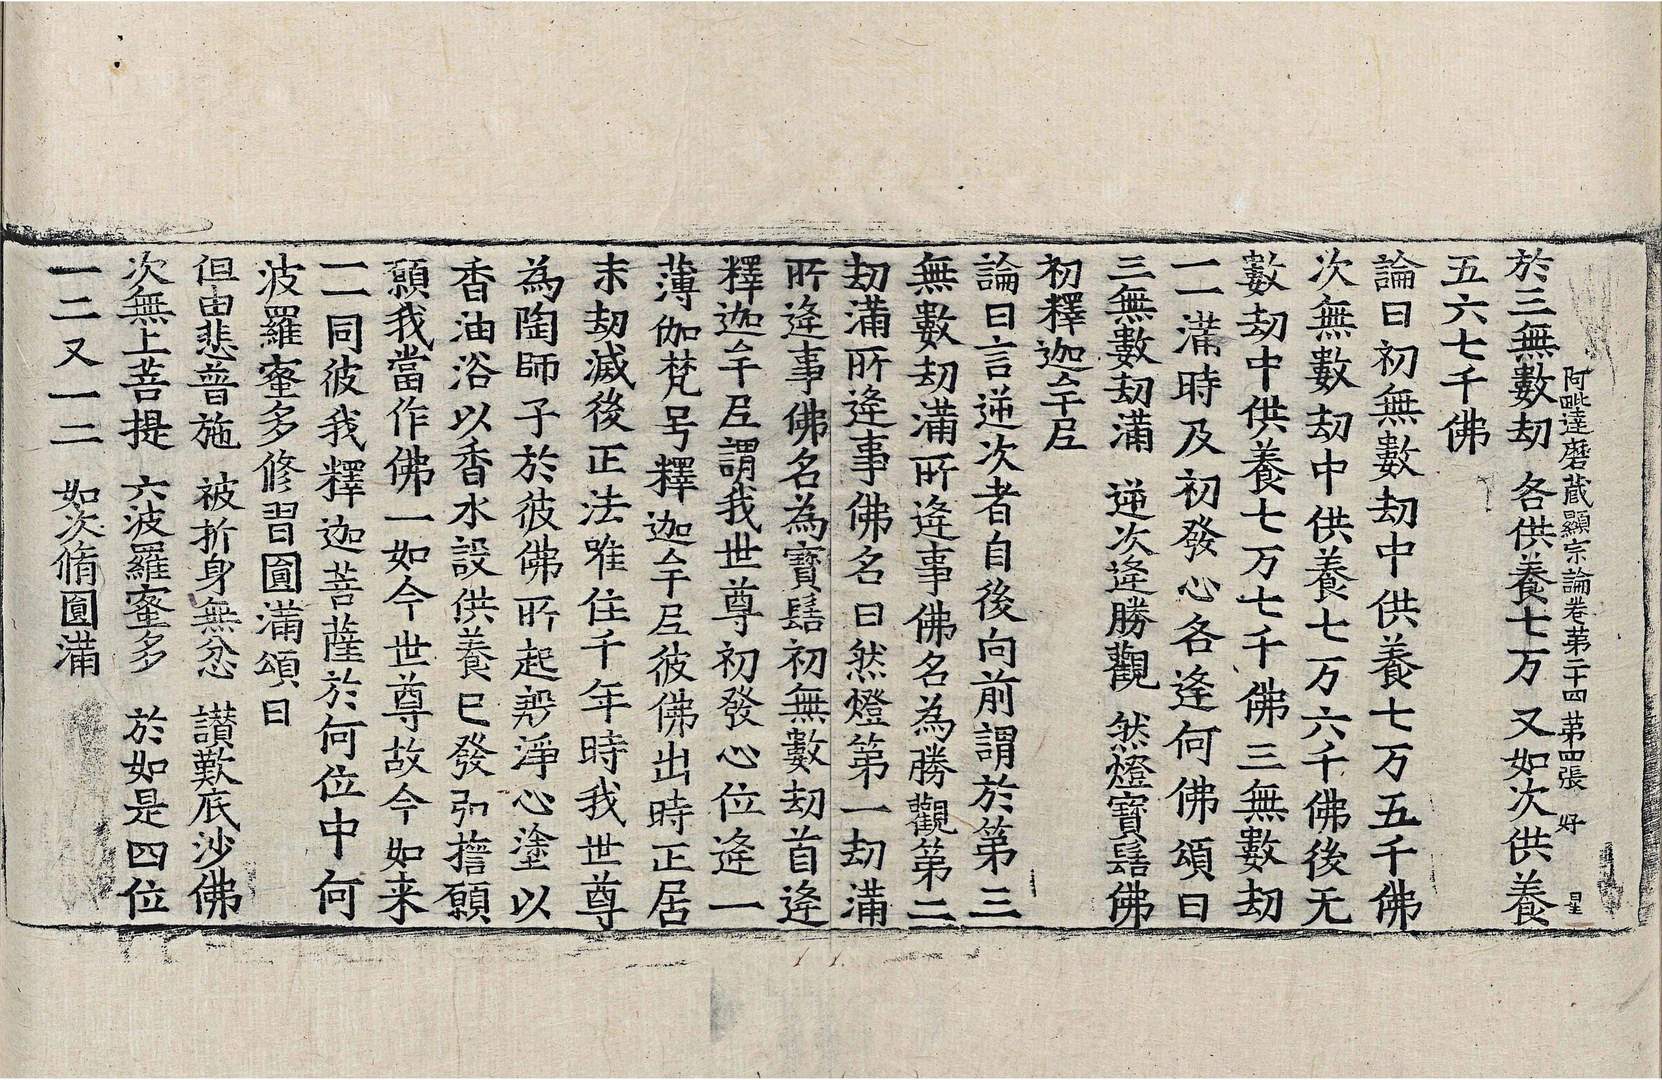 阿毗達磨藏顯宗論卷第二十四 第四張 好 星
於三無數劫 各供養七万 又如次供養
五六七千佛
論曰初無數劫中供養七万五千佛
次無數劫中供養七万六千佛後无
數劫中供養七万七千佛三無數劫
一一滿時及初發心各逢何佛頌曰
三無數劫滿 逆次逢勝觀 然燈寶髻佛
初釋迦牟尼
論曰言逆次者自後向前謂於第三
無數劫滿所逢事佛名為勝觀第二
劫滿所逢事佛名曰然燈第一劫滿
所逢事佛名為寶髻初無數劫首逢
釋迦牟尼謂我世尊初發心位逢一
薄伽梵号釋迦牟尼彼佛出時正居
末劫滅後正法唯住千年時我世尊
為陶師子於彼佛所起殷淨心塗以
香油浴以香水設供養已發弘擔願
願我當作佛一如今世尊故今如来
一一同彼我釋迦菩薩於何位中何
波羅蜜多修習圓滿頌曰
但由悲普施 被折身無忿 讃歎底沙佛
次無上菩提 六波羅蜜多 於如是四位
一二又一二 如次脩圓滿